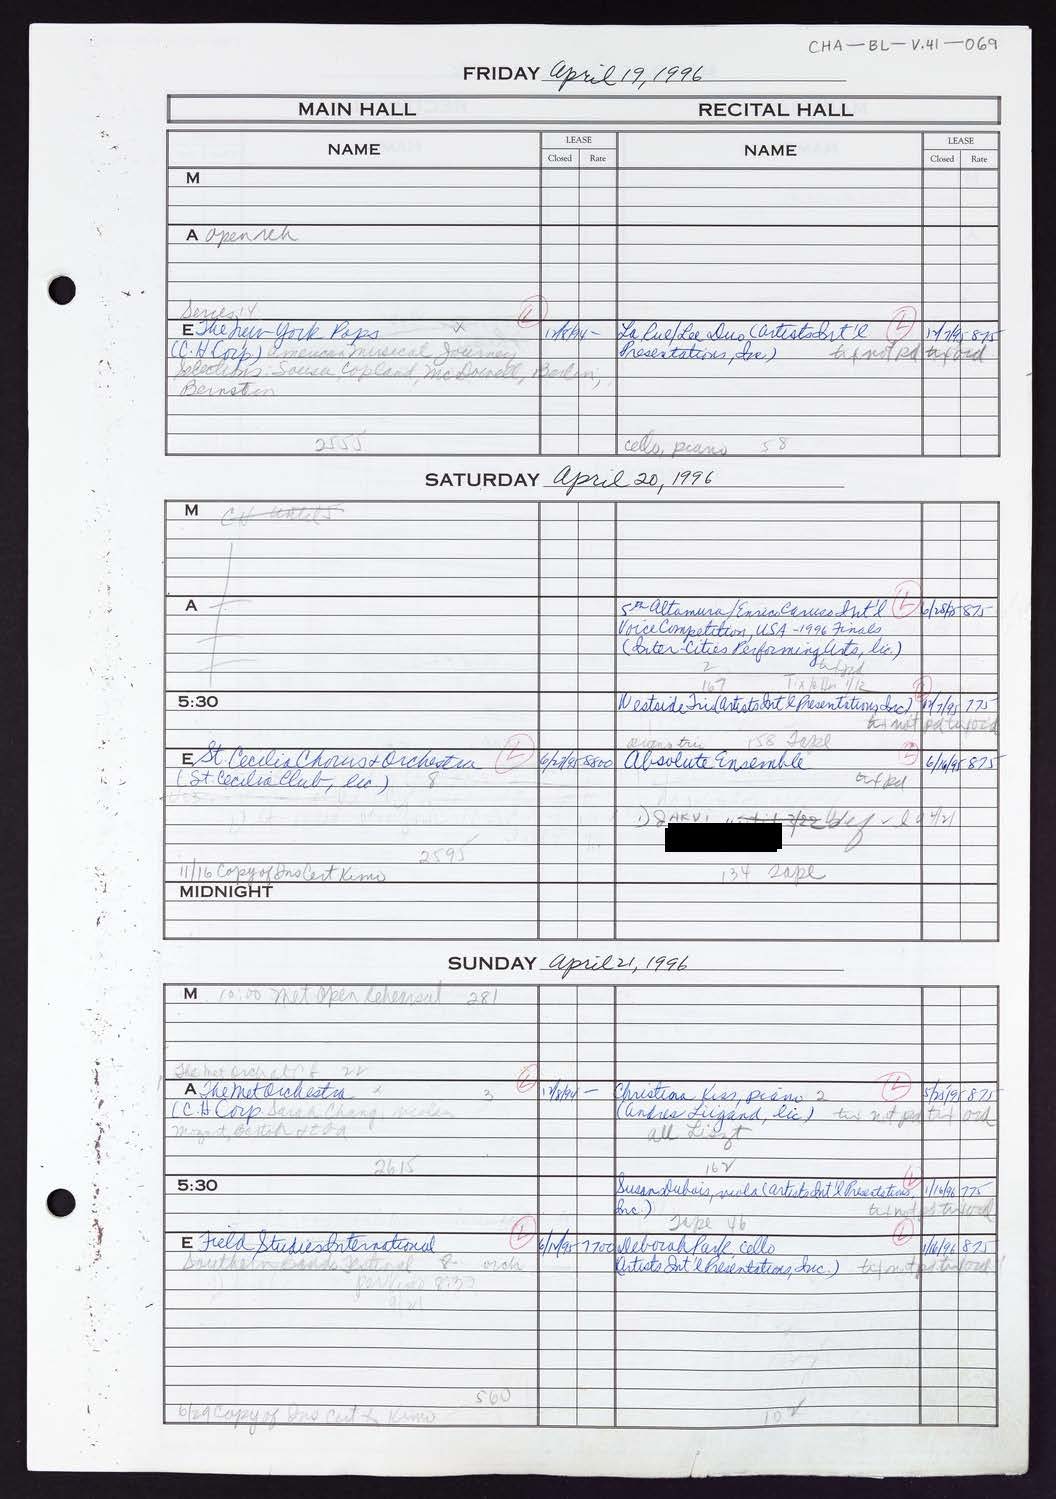 CHA-BL-V.41-069
FRIDAY April 19, 1996
MAIN HALL RECITAL HALL
NAME LEASE Closed Rate NAME LEASE Closed Rate
M
A open reh
Series 14
E The New York Pops 12/8/94 -
(C.H. Corp) American Musical Journey
Selections: Sousa, Copland, McDowell, Berlin,
Bernstein
2555
La Rue/Lee Duo (Artists Int'l L 12/7/95 875
Presentations, Inc.) tix not pd tix ord
cello, piano 58
SATURDAY April 20, 1996
M
A
5th Altamura/Enrico Caruso Int'l L 6/28/95 875
Voice Competition, USA -1996 Finals
(Inter-Cities Performing Arts, Inc.)
2 tix pd
167
5:30
Westside Trio (Artists Int'l Presentations, Inc) 12/7/95 775
tix not pd tix ord
158 Tape
E St. Cecilia Chorus & Orchestra L 6/27/95 5800
(St. Cecilia Club, Inc) 8
2595
11/16 Copy of Ins Cert Kimo
Absolute Ensemble 6/16/95 875
tix pd
1) JARVI
134 Tape
MIDNIGHT
SUNDAY April 21, 1996
M 10:00 Met Open Rehearsal 281
The Met Orch at CH 22
A The Met Orchestra 3 L 12/8/94 -
(C.H. Corp Sarah Chang, violin
Mozart, Bartok
2615
Christina Kiss, piano 2 L 5/25/95 875
(Andrea Liigand, Inc) tix not pd tix ord
all Liszt
162
5:30
Susan Dubois, viola (Artists Int'l Presentations, L 1/16/96 775
Inc.) tix not pd tix ord
Tape 46
E Field Studies International L 6/12/95 7700
8- orch
8:30
9/21
560
6/29 Copy of Ins Cert to Kimo
Deborah Park, cello L 1/16/96 875
Artists Int'l Presentations, Inc.) tix not pd tix ord
102